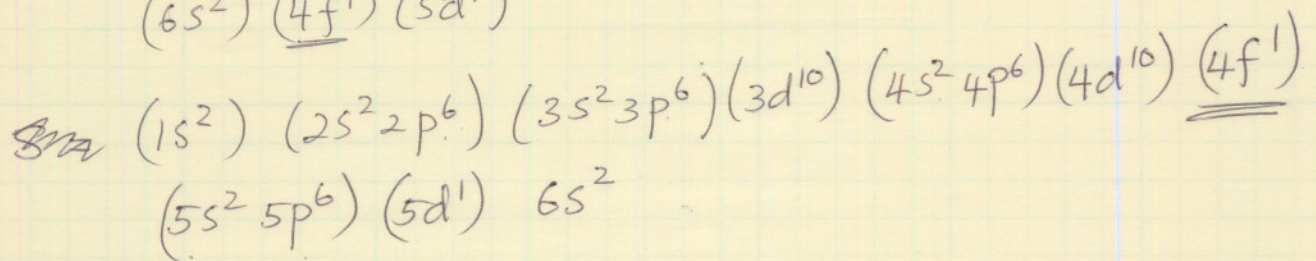 (6s²) (4f¹) (5d¹)
(1s²) (2s² 2p⁶) (3s² 3p⁶) (3d¹⁰) (4s² 4p⁶) (4d¹⁰) (4f¹)
(5s² 5p⁶) (5d¹) 6s²